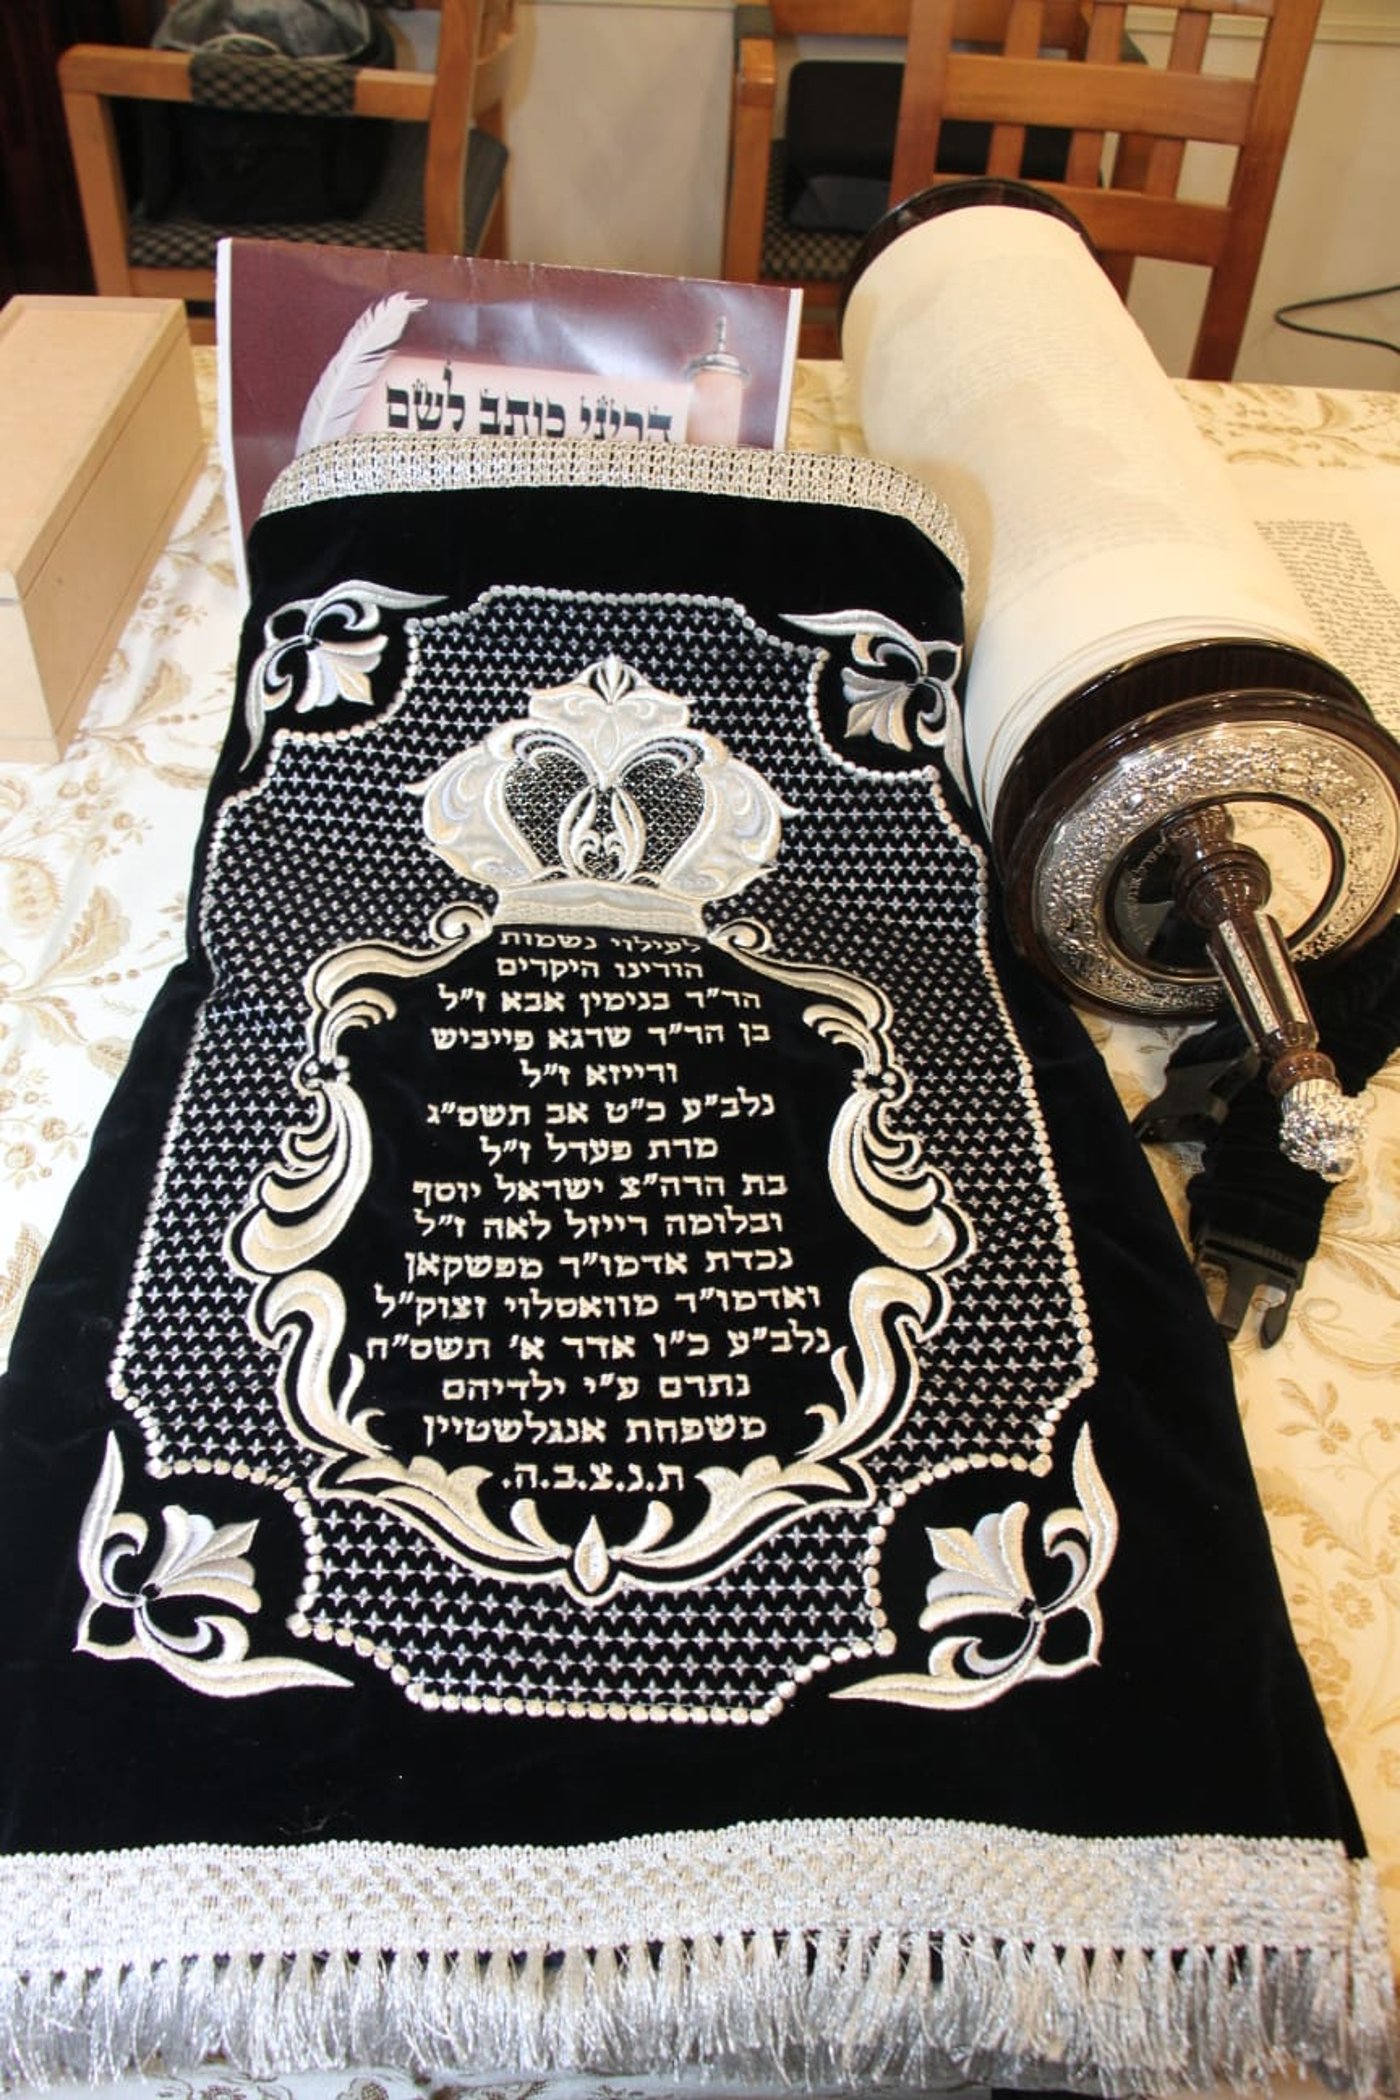 הריני כותב לשם
לעילוי נשמות
הורינו היקרים
הר״ר בנימין אבא ז״ל
בן הר״ר שרגא פייביש
ורייזא ז״ל
נלב״ע כ״ט אב תשס״ג
מרת פערל ז״ל
בת הרה״צ ישראל יוסף
ובלומה רייזל לאה ז״ל
נכדת אדמו״ר מפשקאן
ואדמו״ר מוואסלוי זצוק״ל
נלב״ע כ״ו אדר א׳ תשס״ח
נתרם ע״י ילדיהם
משפחת אנגלשטיין
ת.נ.צ.ב.ה.